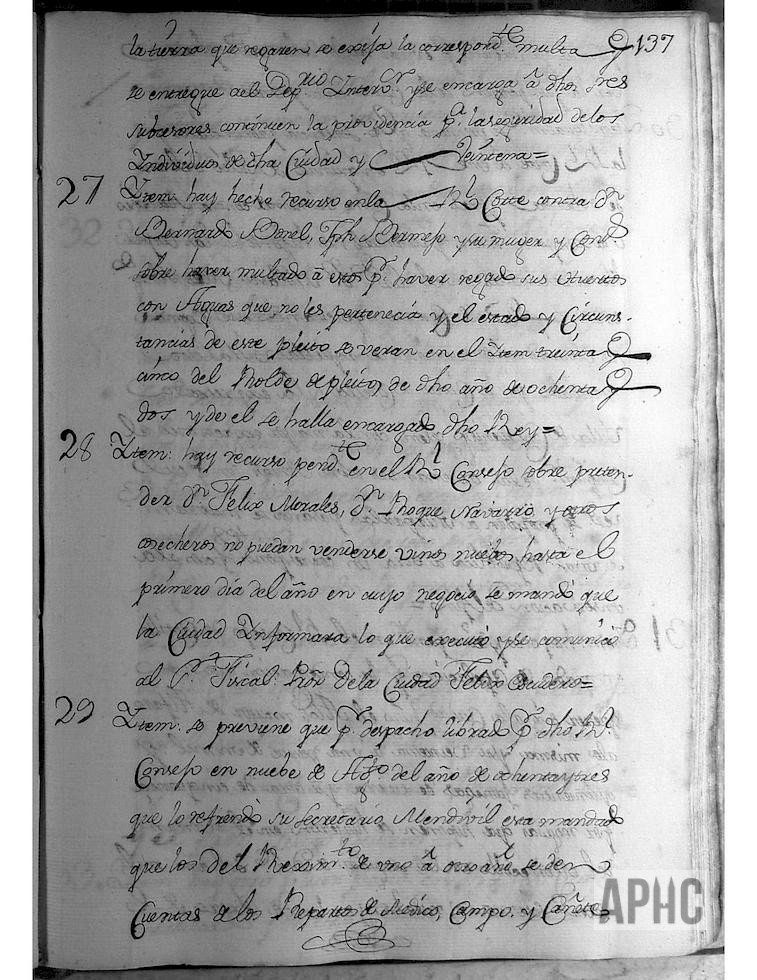 la tierra que regaren se exija la correspond.te multa y 137
se entregue ael Dep.rio Interv.r y se encarga â dhos Sres
subcesores continuen la providencia p.a la seguridad de los
Individuos de dha Ciudad y Veintena=
27 Ytem: hay hecho recurso en la R.l Corte contra D.n
Bernardo Bonel, Jph Bermejo y su muger y Cons.
sobre haver multado â estos p.r haver regado sus Huertos
con Aguas que no les pertenecia y el estado y Circuns-
tancias de este pleito se veran en el Ytem treinta y
cinco del Rolde de pleitos de dho año de ochenta y
dos y de el se halla encargado dho Rey=
28 Ytem: hay recurso pend.te en el R.l Consejo sobre preten-
der D.n Felix Morales, D.n Roque Navarro y otros
cosecheros no puedan venderse vinos nuebos hasta el
primero dia del año en cuyo negocio se mandó que
la Ciudad Informara lo que executó y se comunicó
al S.r Fiscal: Pror. de la Ciudad Felix Escudero=
29 Ytem: se previene que p.r despacho librado p.r dho R.l
Consejo en nuebe de Ag.to del año de ochenta y tres
que lo refrendó su Secretario Mendivil esta mandado
que los del Rexim.to de uno â otro año se den
Cuentas de los Repartos de Medico, Campo, y Cañetes
APHC